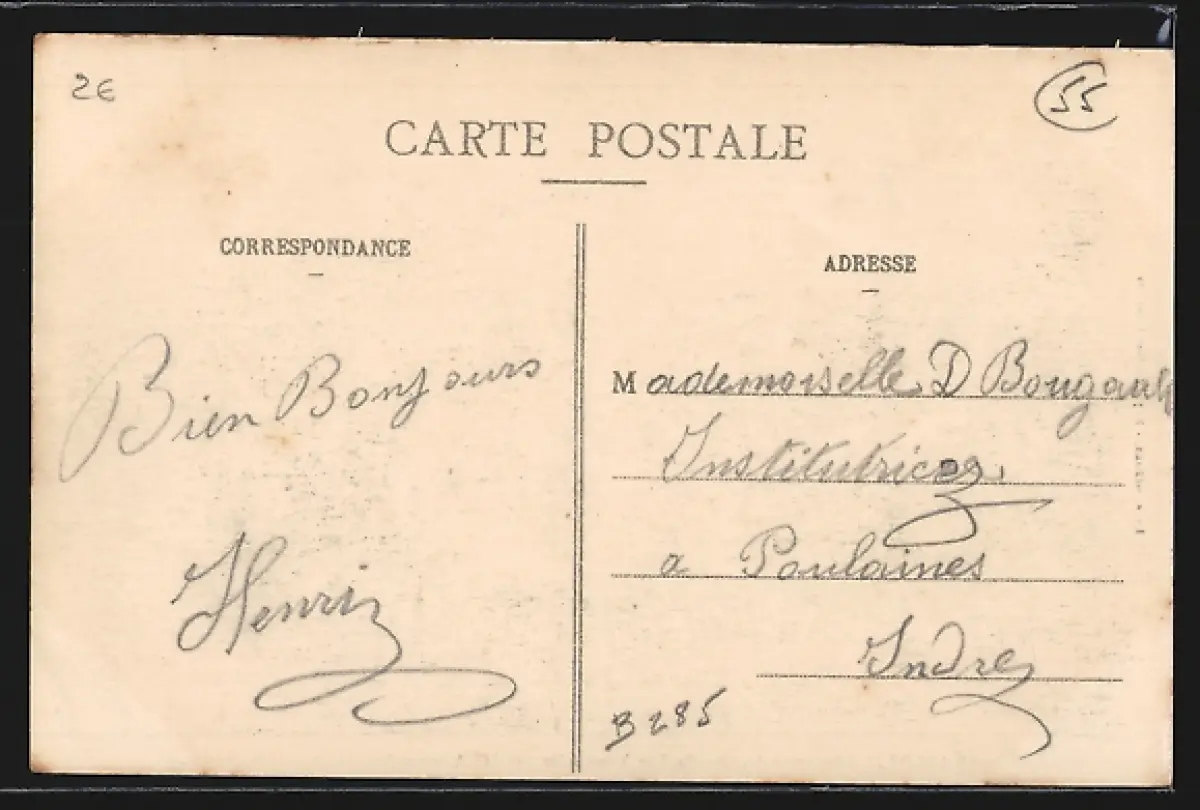 2€
55
CARTE POSTALE
CORRESPONDANCE
ADRESSE
Bien Bonjours
Henri
Mademoiselle D Bougault
Institutrice
a Poulaines
Indre
B285